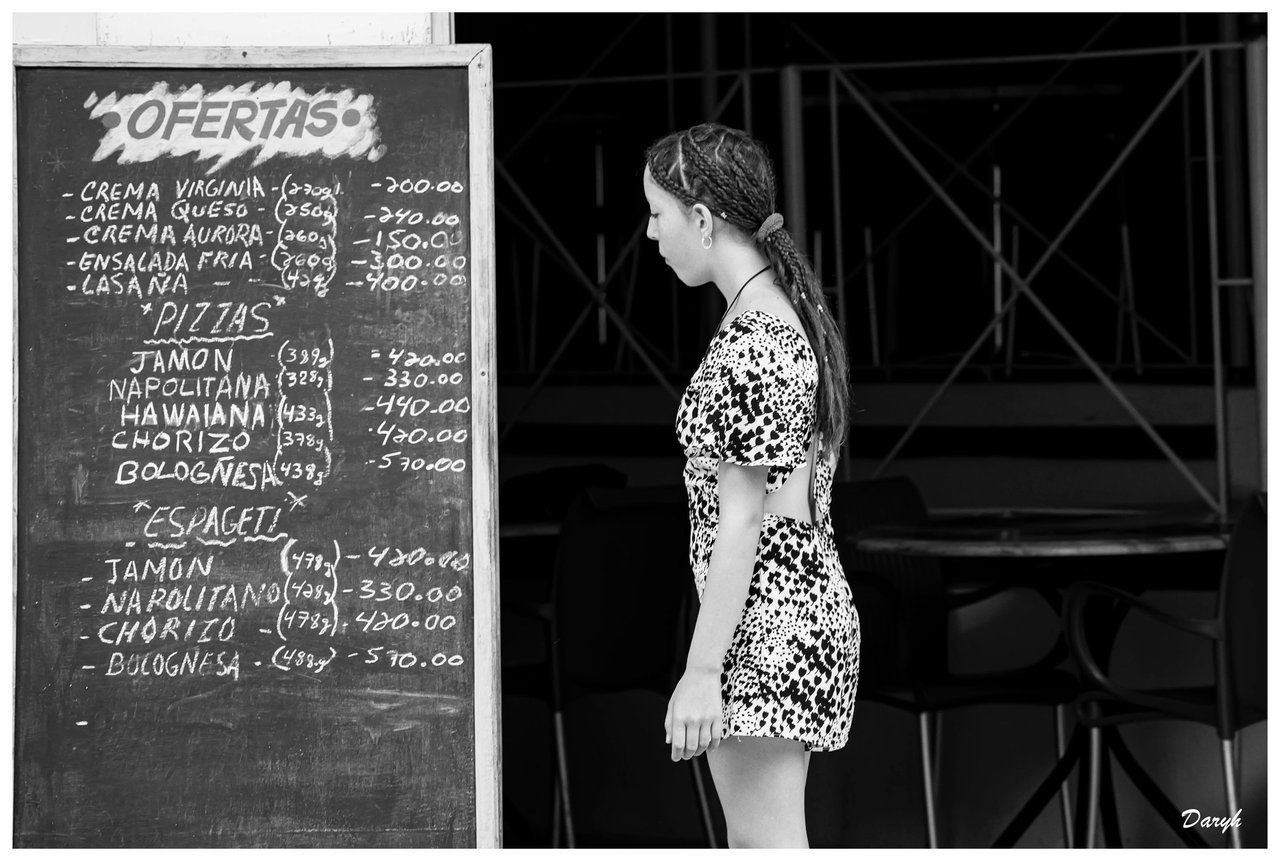 • OFERTAS •
- CREMA VIRGINIA - (270g) - 200.00
- CREMA QUESO - (250g) - 240.00
- CREMA AURORA - (260g) - 150.00
- ENSALADA FRIA - (260g) - 300.00
- LASAÑA - - (424g) - 400.00
* PIZZAS *
JAMON (389g) - 420.00
NAPOLITANA (328g) - 330.00
HAWAIANA (433g) - 440.00
CHORIZO (378g) - 420.00
BOLOGÑESA (438g) - 570.00
* ESPAGETI *
- JAMON (478g) - 420.00
- NAPOLITANO (428g) - 330.00
- CHORIZO - (478g) - 420.00
- BOLOGÑESA - (488g) - 570.00
Daryh